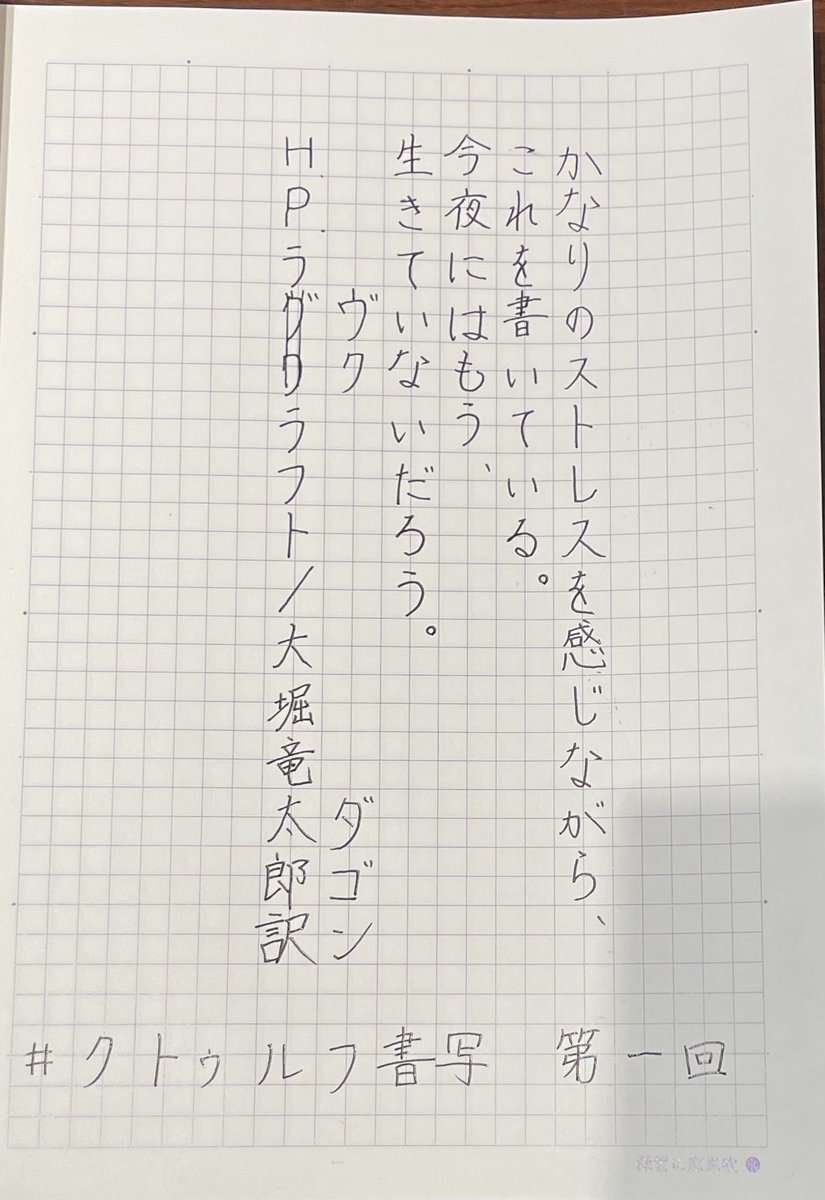 かなりのストレスを感じながら、
これを書いている。
今夜にはもう、
生きていないだろう。
ダゴン
H.P.ラヴクラフト/大堀竜太郎訳
#クトゥルフ書写 第一回